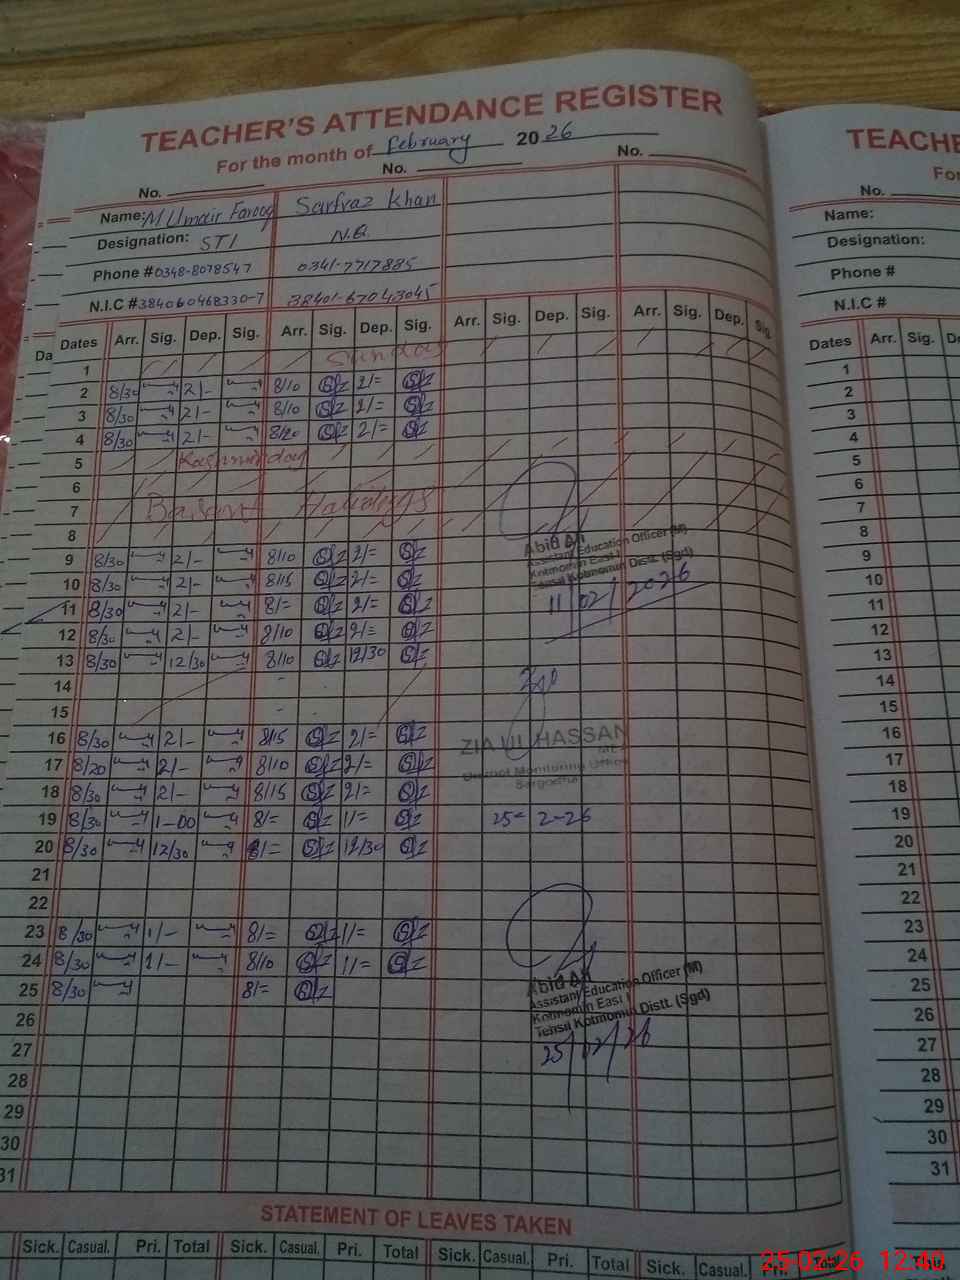 TEACHER'S ATTENDANCE REGISTER
For the month of February 2026
No. No. No.
Name: M Umair Farooq Sarfraz Khan
Designation: STI N.Q.
Phone # 0348-8078547 0341-7717885
N.I.C # 384060468330-7 38401-67043045
Dates Arr. Sig. Dep. Sig. Arr. Sig. Dep. Sig. Arr. Sig. Dep. Sig. Arr. Sig. Dep. Sig.
1 Sunday
2 8/30 2/- 8/10 2/=
3 8/30 2/- 8/10 2/=
4 8/30 2/- 8/20 2/=
5 Kashmir day
6
7 Basant Holidays
8
9 8/30 2/- 8/10 2/=
10 8/30 2/- 8/15 2/=
11 8/30 2/- 8/= 2/=
12 8/30 2/- 8/10 2/=
13 8/30 12/30 8/10 12/30
14
15
16 8/30 2/- 8/15 2/=
17 8/20 2/- 8/10 2/=
18 8/30 2/- 8/15 2/=
19 8/30 1-00 8/= 1/=
20 8/30 12/30 8/= 12/30
21
22
23 8/30 1/- 8/= 1/=
24 8/30 1/- 8/10 1/=
25 8/30 8/=
26
27
28
29
30
31
Abid Ali
Assistant Education Officer (M)
Kotmomin East I
Tehsil Kotmomin Distt. (Sgd)
11/02/2026
ZIA UL HASSAN
District Monitoring Officer
Sargodha
25-2-26
Abid Ali
Assistant Education Officer (M)
Kotmomin East I
Tehsil Kotmomin Distt. (Sgd)
25/02/26
STATEMENT OF LEAVES TAKEN
Sick. Casual. Pri. Total Sick. Casual. Pri. Total Sick. Casual. Pri. Total Sick. Casual. Pri. Total
TEACHE
For
No.
Name:
Designation:
Phone #
N.I.C #
Dates Arr. Sig. De
1
2
3
4
5
6
7
8
9
10
11
12
13
14
15
16
17
18
19
20
21
22
23
24
25
26
27
28
29
30
31
25-02-26 12:40